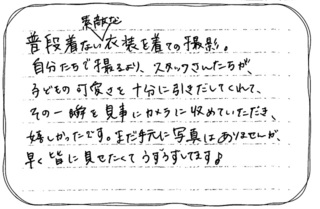 普段着ない素敵な衣装を着ての撮影。
自分たちで撮るより、スタッフさんたちが、
子どもの可愛さを十分に引きだしてくれて、
その一瞬を見事にカメラに収めていただき、
嬉しかったです。まだ手元に写真はありませんが、
早く皆に見せたくてうずうずしてます♪